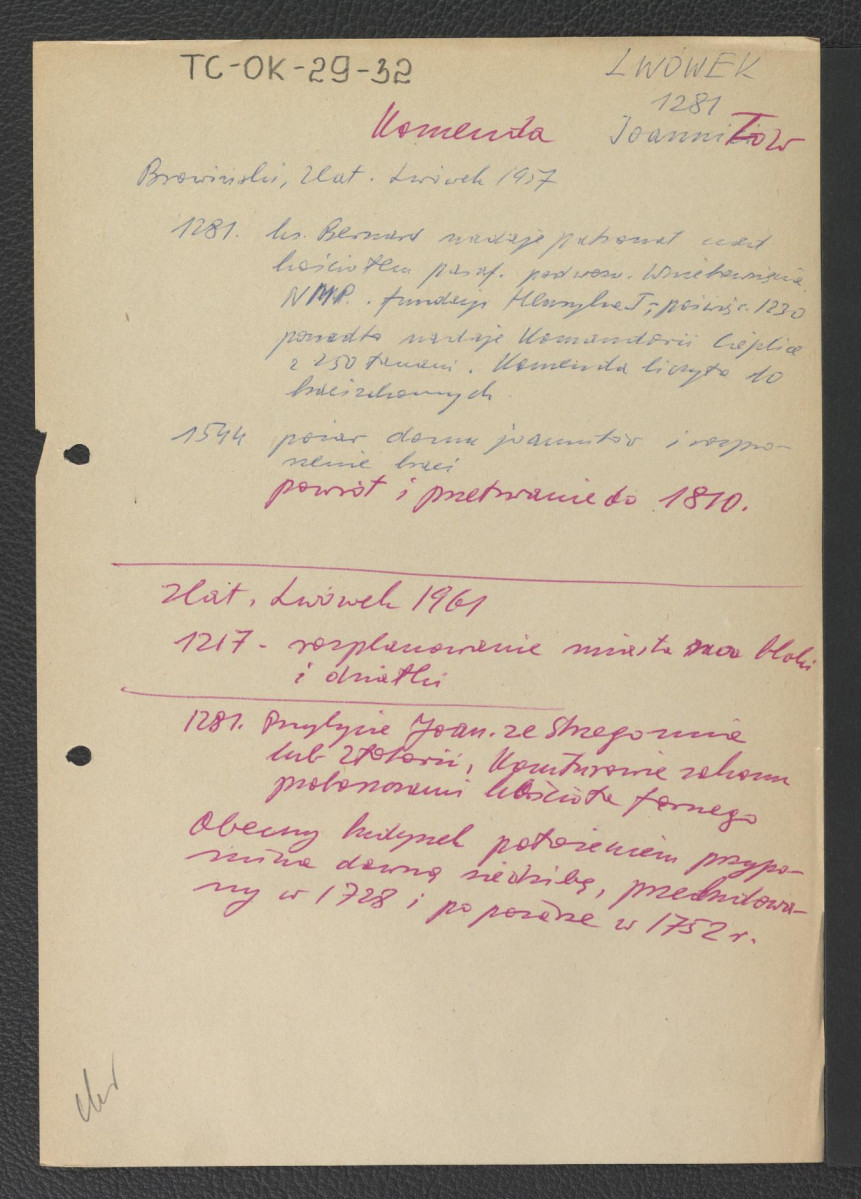 TC-OK-29-32
LWÓWEK
1281
Komenda Joannitów
Browiński, Zlat. Lwówek 1957
1281. ks. Bernard nadaje patronat nad
kościołem paraf. pod wezw. Wniebowzięcia
NMP. fundacji Henryka I, poświęc. 1230
ponadto nadaje Komandorii Cieplice
z 250 łanami. Komenda liczyła 10
braci zakonnych
1544 pożar domu joannitów i rozpro-
szenie braci
powrót i przetrwanie do 1810.
Zlat. Lwówek 1961
1217 - rozplanowanie miasta na bloki
i działki
1281. Przybycie Joan. ze Strzegomia
lub Złotorii, Komturowie zakonu
proboszczami kościoła farnego
Obecny budynek położeniem przypo-
mina dawną siedzibę, przebudowa-
ny w 1728 i po pożarze w 1752 r.